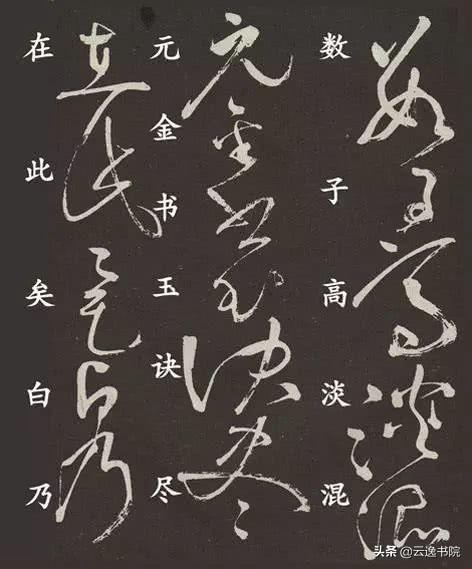 数子高淡混
元金书玉诀尽
在此矣白乃
头条 @云逸书院